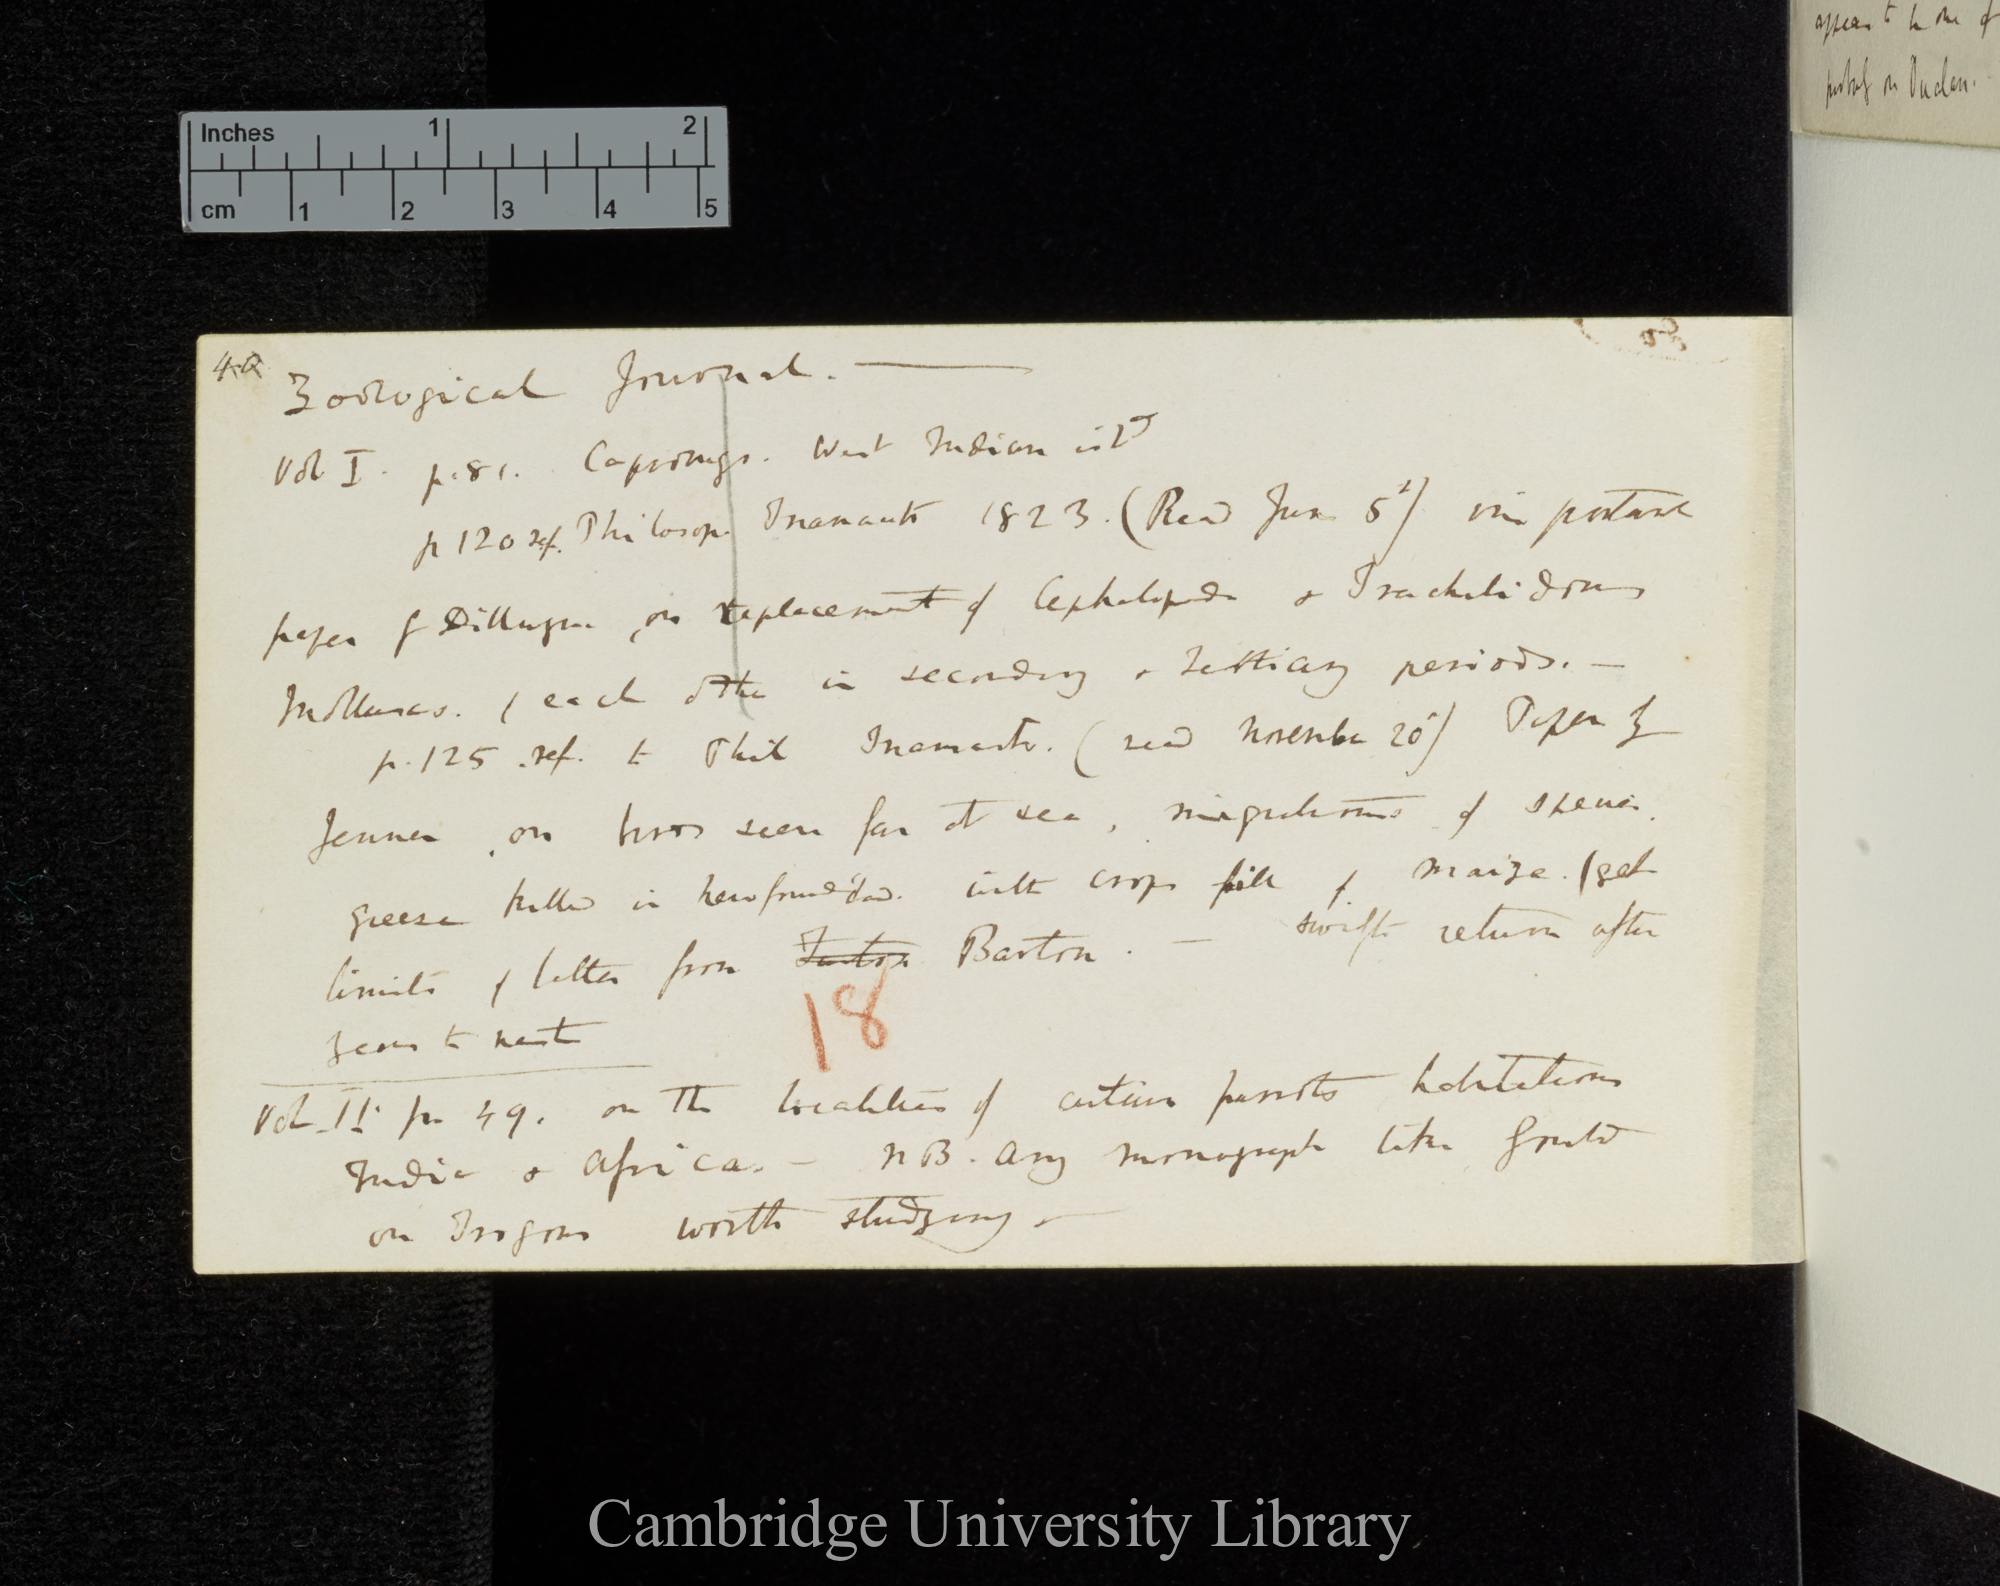 Inches 1 2
cm 1 2 3 4 5
appears to be one of
Zoological Journal. —
Vol I. p. 81. Capromys. West Indian isld
p 120 ref. Philosop. Transact 1823. (Read June 5t) important
paper of Dillwyn, on replacement of Cephalopoda & Trachelidous
Molluscs. / each other in secondary & tertiary periods. —
p. 125 .ref. to Phil Transact. (read November 20) Paper by
Jenner on birds seen far at sea, migrations of species.
geese killed in Newfoundlad. with crops full of Maize. (get
limits of letter from Barton. — swifts return after
years to nest
18
Vol II. p 49. on the localities of certain parrots habitations
India & Africa. — NB. Any monograph like Gould
on Trogons worth studying —
Cambridge University Library